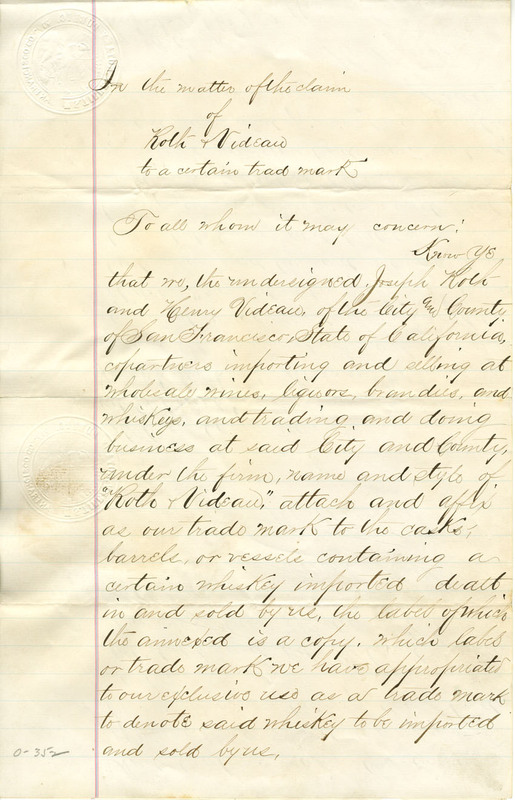 In the matter of the claim
of
Roth & Videau
to a certain trad mark
To all whom it may concern:
Know Ye
that we, the undersigned, Joseph Roth
and Henry Videau, of the City and County
of San Francisco, State of California,
copartners importing and selling at
wholesale wines, liquors, brandies, and
whiskeys, and trading and doing
business at said City and County,
under the firm, name and style of
"Roth & Videau," attach and afix
as our trade mark to the casks,
barrels, or vessels containing a
certain whiskey imported dealt
in and sold by us, the label of which
the annexed is a copy, which label
or trade mark we have appropriated
to our exclusive use as a trade mark
to denote said whiskey to be imported
and sold by us.
0-352